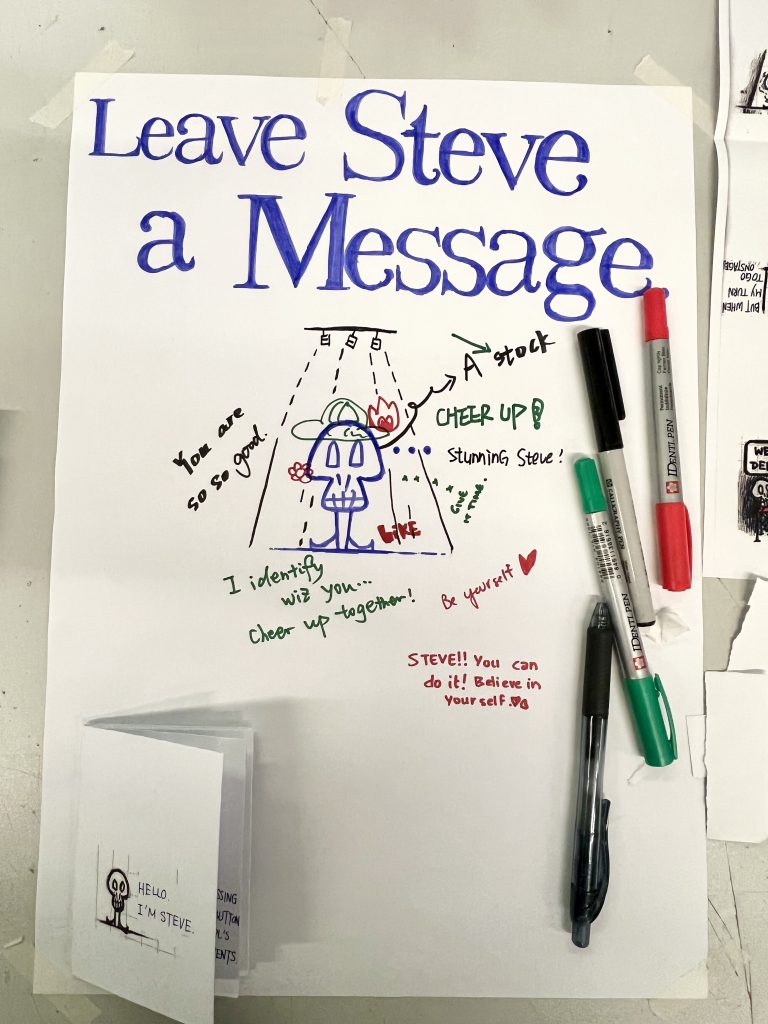 Leave Steve
a Message.
A stock
CHEER UP!
You are
so so good.
Stunning Steve!
GIVE
IT TIME.
LIKE
I identify
wiz you...
cheer up together!
Be yourself
STEVE!! You can
do it! Believe in
yourself.
HELLO.
I'M STEVE.
SSING
UTTON
OL'S
ENTS.
BUT WHEN
MY TURN
TO GO
ONSTAGE
WE
DE
IDENTI.PEN
IDENTI.PEN